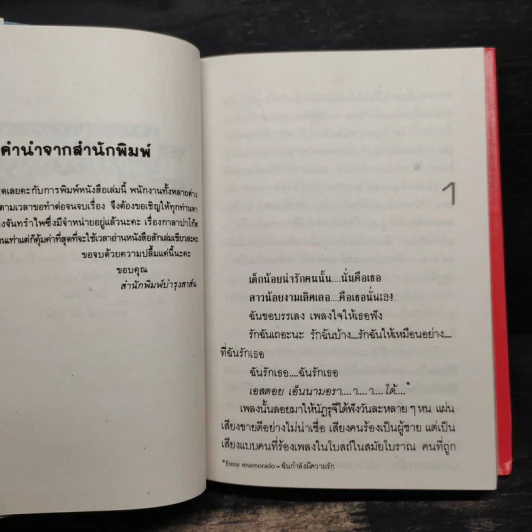 คำนำจากสำนักพิมพ์
คเลยคะกับการพิมพ์หนังสือเล่มนี้ พนักงานทั้งหลายต่าง
ตามเวลาขอทำต่อจนจบเรื่อง จึงต้องขอเชิญให้ทุกท่านหา
งจันทรำไพซึ่งมีจำหน่ายอยู่แล้วนะคะ เรื่องกาลาปาโกส
นเท่าแต่ก็คุ้มค่าที่สุดที่จะใช้เวลาอ่านหนังสือสักเล่มเชียวละคะ
ขอจบด้วยความปลื้มแค่นี้นะคะ
ขอบคุณ
สำนักพิมพ์บำรุงสาส์น
1
เด็กน้อยน่ารักคนนั้น....นั่นคือเธอ
สาวน้อยงามเลิศเลอ....คือเธอนั่นเอง
ฉันขอบรรเลง เพลงใจให้เธอฟัง
รักฉันเถอะนะ รักฉันบ้าง....รักฉันให้เหมือนอย่าง....
ที่ฉันรักเธอ
ฉันรักเธอ....ฉันรักเธอ
เอสตอย เอ็นนามอรา....า....า....โด้....*
เพลงนั้นลอยมาให้นัฎรุจีได้ฟังวันละหลาย ๆ หน แผ่น
เสียงขายดีอย่างไม่น่าเชื่อ เสียงคนร้องเป็นผู้ชาย แต่เป็น
เสียงแบบคนที่ร้องเพลงในโบสถ์ในสมัยโบราณ คนที่ถูก
*Estoy enamorado = ฉันกำลังมีความรัก